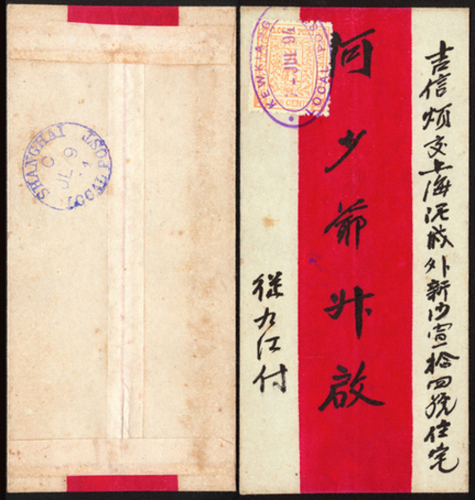 SHANGHAI
LOCAL POST
JUL
9
KEWKIANG
LOCAL POST
JUL 94
CENT
吉信煩交上海泥城外新沙宣拾四號住宅
何少爺升啟
從九江付